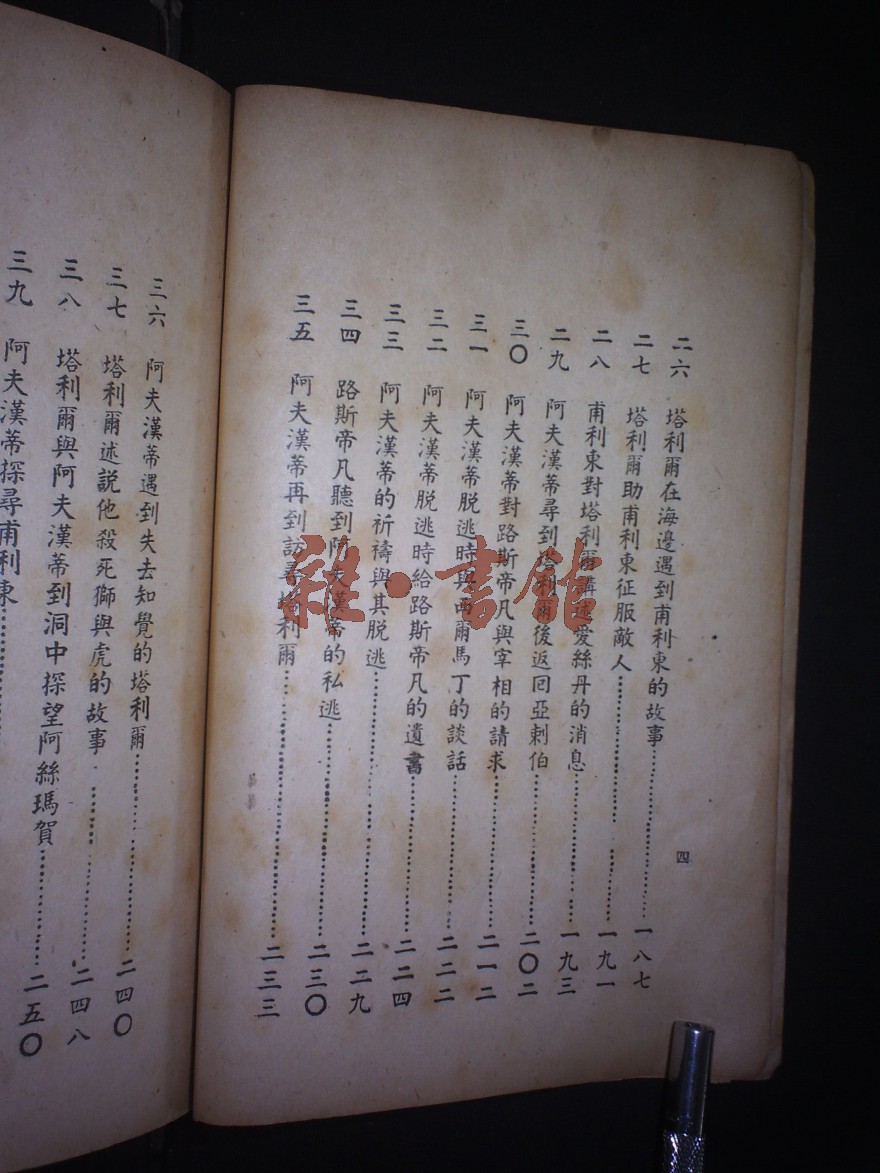 二六 塔利爾在海邊遇到甫利東的故事……一八七
二七 塔利爾助甫利東征服敵人……一九一
二八 甫利東對塔利爾講述愛絲丹的消息……一九三
二九 阿夫漢蒂尋到塔利爾後返回亞剌伯……二〇二
三〇 阿夫漢蒂對路斯帝凡與宰相的請求……二一二
三一 阿夫漢蒂脱逃時與西爾馬丁的談話……二二二
三二 阿夫漢蒂脱逃時給路斯帝凡的遺書……二二四
三三 阿夫漢蒂的祈禱與其脱逃……二二九
三四 路斯帝凡聽到阿夫漢帝的私逃……二三〇
三五 阿夫漢蒂再到訪尋塔利爾……二三三
四
三六 阿夫漢蒂遇到失去知覺的塔利爾……二四〇
三七 塔利爾述説他殺死獅與虎的故事……二四八
三八 塔利爾與阿夫漢蒂到洞中探望阿絲瑪賀……二五〇
三九 阿夫漢蒂探尋甫利東……
雜·書館